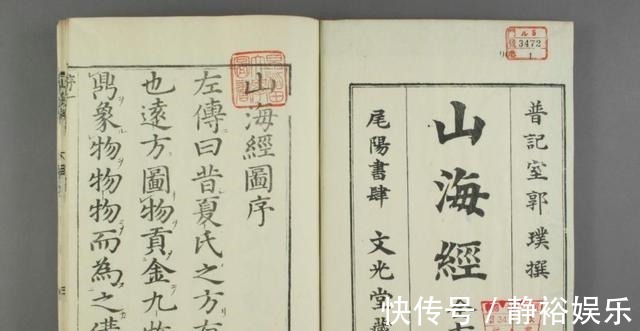 晉記室郭璞撰
山海經
尾陽書肆 文光堂藏
3472
1
山海經圖序
左傳曰昔夏氏之方有
也遠方圖物貢金九牧
象物物物而為之備
序一
快传号 / 静裕娱乐